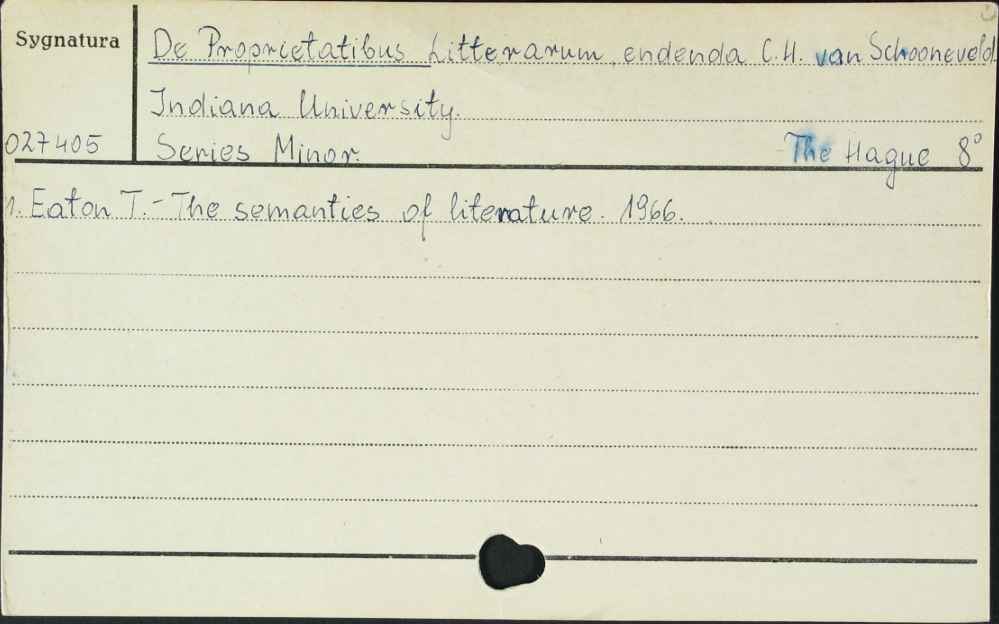 Sygnatura
De Proprietatibus Litterarum endenda C.H. van Schooneveld.
Indiana University.
027405
Series Minor. The Hague 8°
1. Eaton T. - The semanties of literature. 1966.